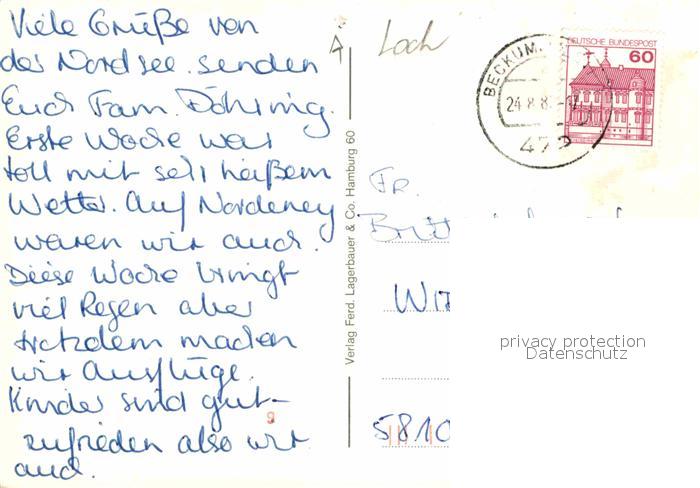 Viele Grüße von
der Nordsee senden
Euch Fam. Döhring.
Erste Woche war
toll mit sehr heißem
Wetter. Auf Norderney
waren wir auch.
Diese Woche bringt
viel Regen aber
trotzdem machen
wir Ausflüge.
Kinder sind gut-
zufrieden also wir
auch.
Verlag Ferd. Lagerbauer & Co. Hamburg 60
Loch
BECKUM
24.8.8
DEUTSCHE BUNDESPOST
60
Fr.
Wit
5810
privacy protection
Datenschutz
9